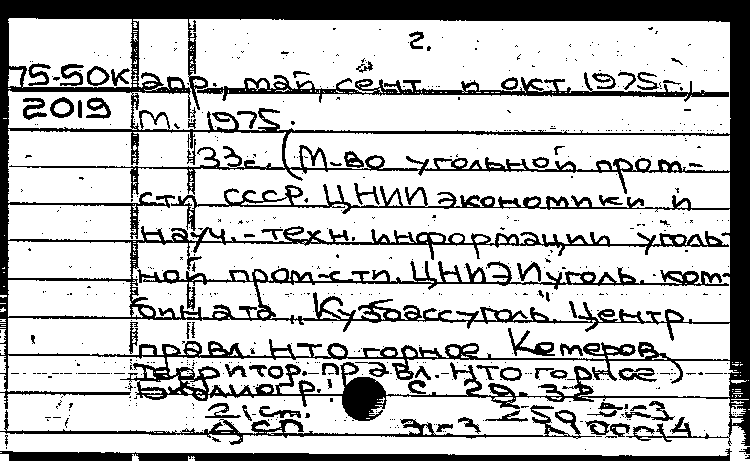 2.
75-50К апр., май, сент. и окт. 1975г.).
2019 М. 1975.
33с. (М-во угольной пром-
сти СССР. ЦНИИ экономики и
науч.-техн. информации уголь
ной пром-сти. ЦНИЭИуголь. ком-
бината „Кузбассуголь". Центр.
правл. НТО горное. Кемеров.
территор. правл. НТО горное)
Библиогр.: с. 29-32
2 1 ст. 250 экз
СП. N 00614